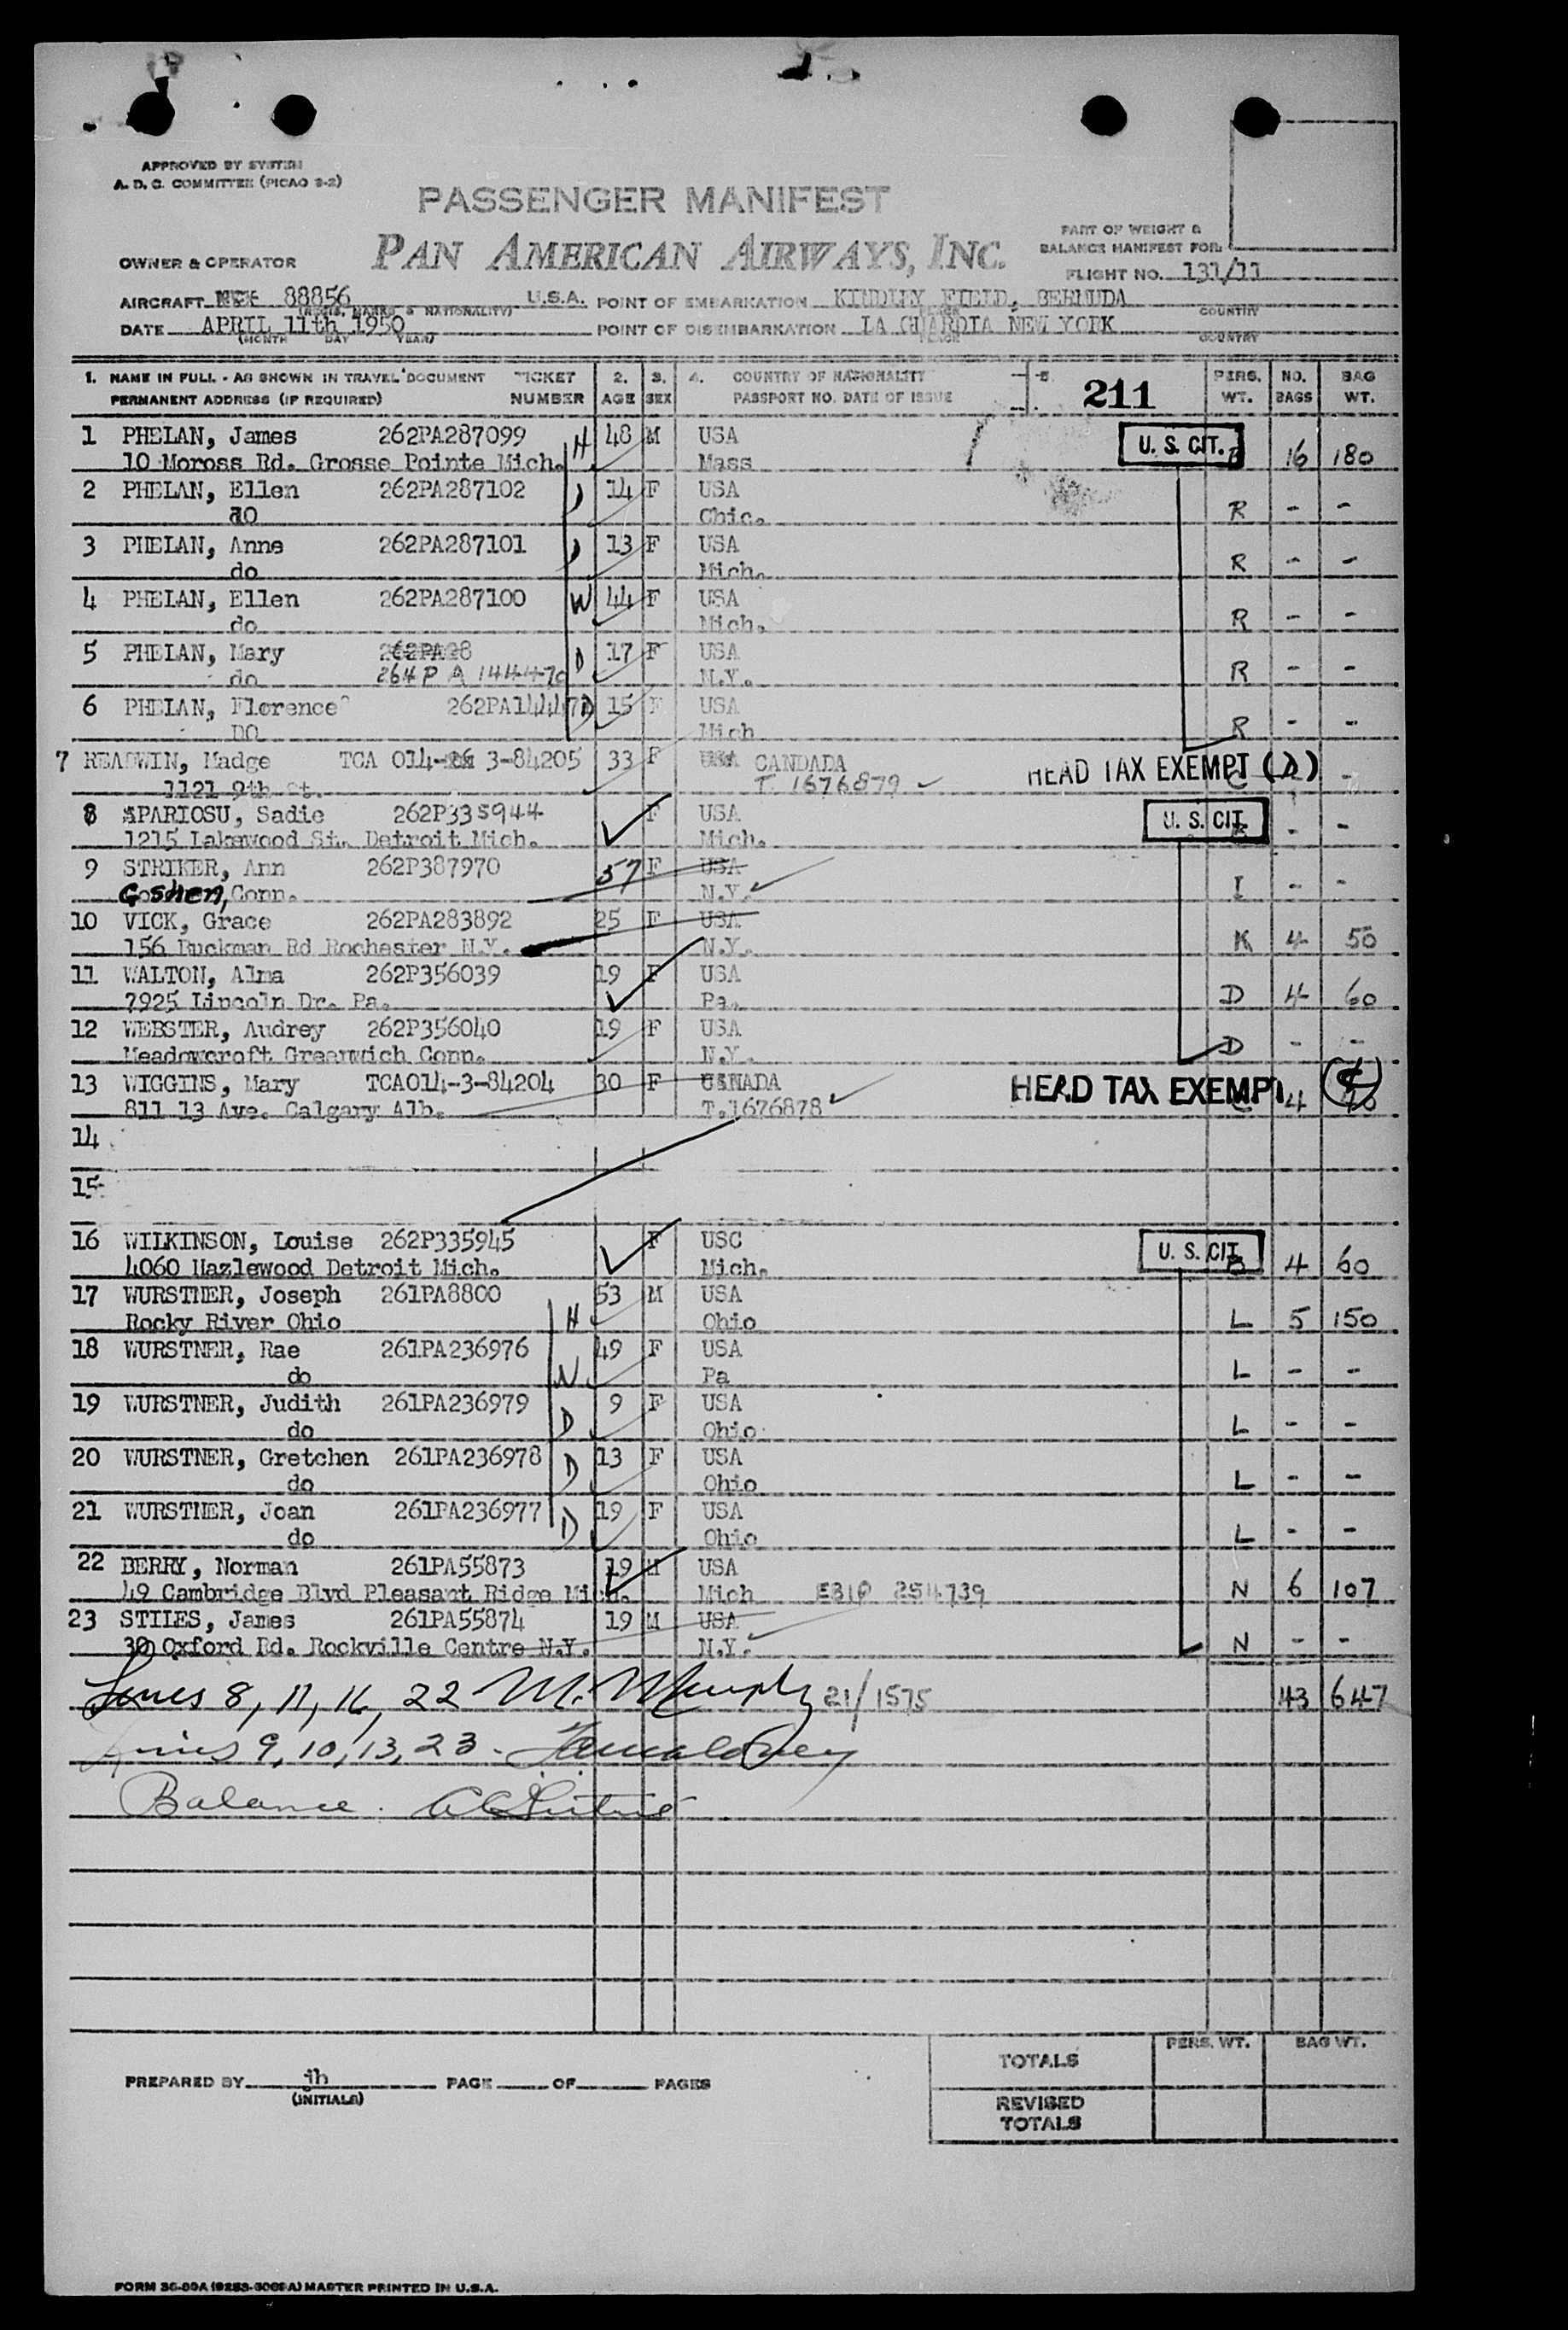 APPROVED BY SYSTEM
A. D. C. COMMITTEE (PICAO 9-2)
PASSENGER MANIFEST
PAN AMERICAN AIRWAYS, INC.
PART OF WEIGHT &
BALANCE MANIFEST FOR
OWNER & OPERATOR
FLIGHT NO. 131/11
AIRCRAFT 88856 U.S.A. POINT OF EMBARKATION KINDLEY FIELD, BERMUDA
(REGIS. MARKS & NATIONALITY) PLACE COUNTRY
DATE APRIL 11th 1950 POINT OF DISEMBARKATION LA GUARDIA NEW YORK
(MONTH DAY YEAR) PLACE COUNTRY
1. NAME IN FULL - AS SHOWN IN TRAVEL DOCUMENT TICKET 2. 3. 4. COUNTRY OF NATIONALITY 5. 211 PERS. NO. BAG
PERMANENT ADDRESS (IF REQUIRED) NUMBER AGE SEX PASSPORT NO. DATE OF ISSUE WT. BAGS WT.
1 PHELAN, James 262PA287099 H 48 M USA U. S. CIT. 16 180
10 Moross Rd. Grosse Pointe Mich. Mass
2 PHELAN, Ellen 262PA287102 D 14 F USA R - -
do Chic.
3 PHELAN, Anne 262PA287101 D 13 F USA R - -
do Mich.
4 PHELAN, Ellen 262PA287100 W 44 F USA R - -
do Mich.
5 PHELAN, Mary 262PA28 D 17 F USA R - -
do 264 P A 144470 N.Y.
6 PHELAN, Florence 262PA14447 D 15 F USA R - -
DO Mich
7 READWIN, Madge TCA 014- 3-84205 33 F USA CANDADA HEAD TAX EXEMPT (D) -
1121 9th St. T. 1676879
8 SPARIOSU, Sadie 262P335944 F USA U. S. CIT. - -
1215 Lakewood St. Detroit Mich. Mich.
9 STRIKER, Ann 262P387970 57 F USA I - -
Goshen, Conn. N.Y.
10 VICK, Grace 262PA283892 25 F USA K 4 50
156 Buckman Rd Rochester N.Y. N.Y.
11 WALTON, Alma 262P356039 19 F USA D 4 60
7925 Lincoln Dr. Pa. Pa.
12 WEBSTER, Audrey 262P356040 19 F USA D - -
Meadowcroft Greenwich Conn. N.Y.
13 WIGGINS, Mary TCA014-3-84204 30 F CANADA HEAD TAX EXEMPT 4 40
811 13 Ave. Calgary Alb. T.1676878
14
15
16 WILKINSON, Louise 262P335945 F USC U. S. CIT. B 4 60
4060 Hazlewood Detroit Mich. Mich.
17 WURSTNER, Joseph 261PA8800 H 53 M USA L 5 150
Rocky River Ohio Ohio
18 WURSTNER, Rae 261PA236976 W 49 F USA L - -
do Pa
19 WURSTNER, Judith 261PA236979 D 9 F USA L - -
do Ohio
20 WURSTNER, Gretchen 261PA236978 D 13 F USA L - -
do Ohio
21 WURSTNER, Joan 261PA236977 D 19 F USA L - -
do Ohio
22 BERRY, Norman 261PA55873 19 M USA N 6 107
49 Cambridge Blvd Pleasant Ridge Mich. Mich 254739
23 STILES, James 261PA55874 19 M USA N - -
30 Oxford Rd. Rockville Centre N.Y. N.Y.
Lines 8, 11, 16, 22 M. Murphy 21/1575 43 647
Lines 9, 10, 13, 23.
Balance.
TOTALS PERS. WT. BAG WT.
PREPARED BY jh PAGE OF PAGES
(INITIALS)
REVISED
TOTALS
FORM MASTER PRINTED IN U.S.A.